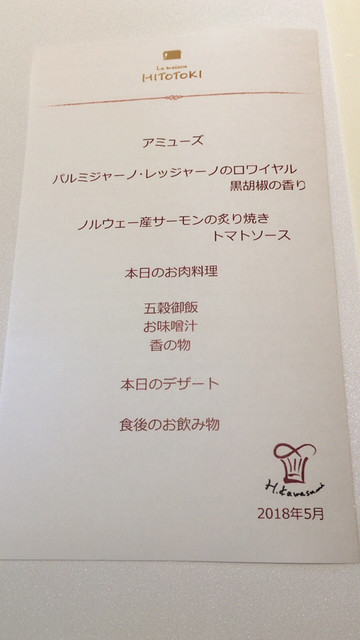 La maison
HITOTOKI
アミューズ
パルミジャーノ・レッジャーノのロワイヤル
黒胡椒の香り
ノルウェー産サーモンの炙り焼き
トマトソース
本日のお肉料理
五穀御飯
お味噌汁
香の物
本日のデザート
食後のお飲み物
H.Kawasumi
2018年5月